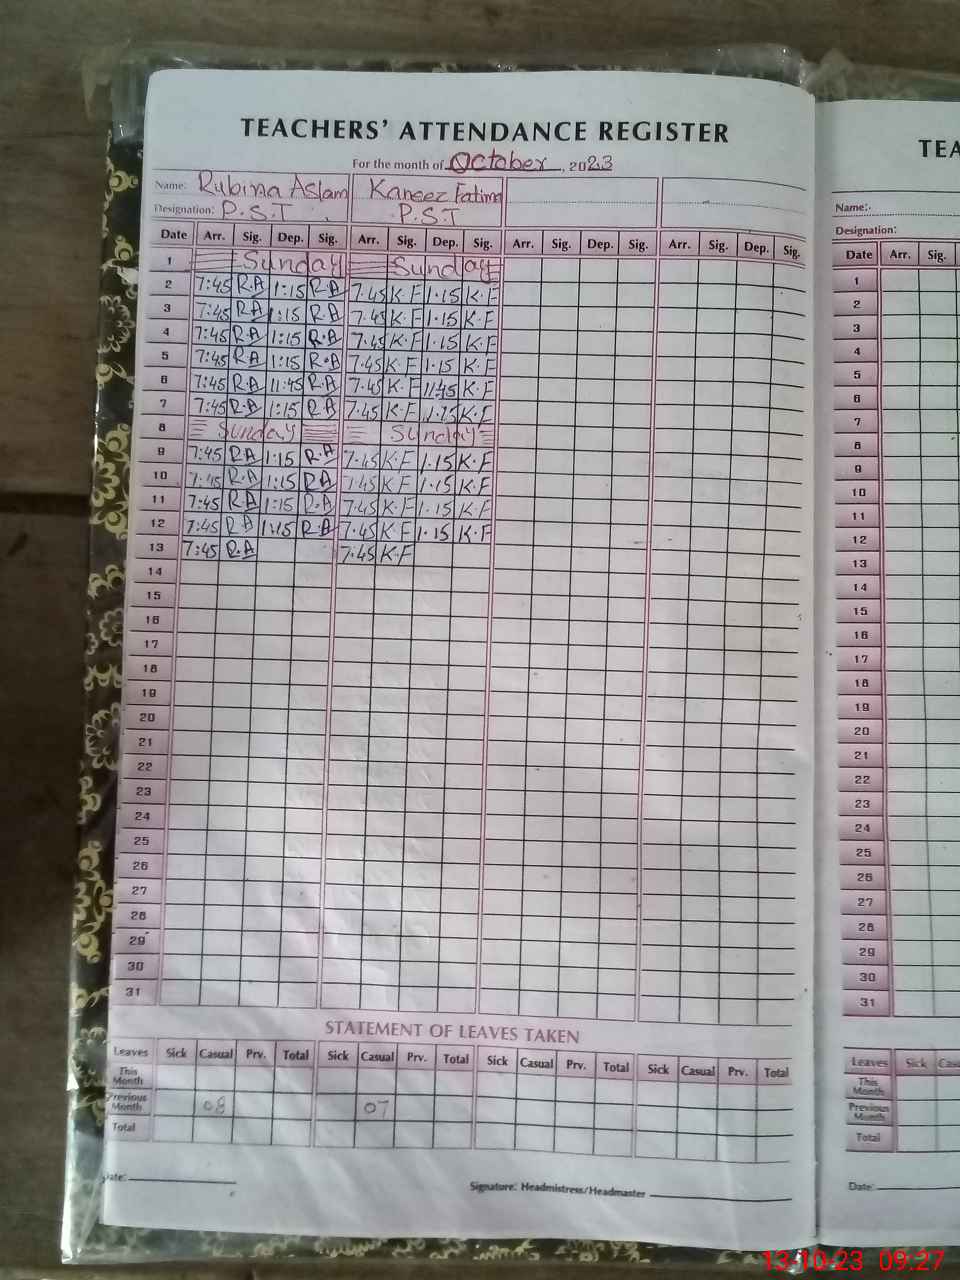 TEACHERS' ATTENDANCE REGISTER
For the month of October, 2023
Name: Rubina Aslam Kaneez Fatima
Designation: P.S.T P.S.T
Date Arr. Sig. Dep. Sig. Arr. Sig. Dep. Sig. Arr. Sig. Dep. Sig. Arr. Sig. Dep. Sig.
1 Sunday Sunday
2 7:45 R.A 1:15 R.A 7.45 K.F 1.15 K.F
3 7:45 R.A 1:15 R.A 7.45 K.F 1.15 K.F
4 7:45 R.A 1:15 R.A 7.45 K.F 1.15 K.F
5 7:45 R.A 1:15 R.A 7.45 K.F 1.15 K.F
6 7:45 R.A 11:45 R.A 7.45 K.F 11:45 K.F
7 7:45 R.A 1:15 R.A 7.45 K.F 1.15 K.F
8 Sunday Sunday
9 7:45 R.A 1:15 R.A 7.45 K.F 1.15 K.F
10 7:45 R.A 1:15 R.A 7.45 K.F 1.15 K.F
11 7:45 R.A 1:15 R.A 7.45 K.F 1.15 K.F
12 7:45 R.A 1:15 R.A 7.45 K.F 1.15 K.F
13 7:45 R.A 7.45 K.F
14
15
16
17
18
19
20
21
22
23
24
25
26
27
28
29
30
31
STATEMENT OF LEAVES TAKEN
Leaves Sick Casual Prv. Total Sick Casual Prv. Total Sick Casual Prv. Total Sick Casual Prv. Total
This Month
Previous Month 08 07
Total
Date:
Signature: Headmistress/Headmaster
TEA
Name:
Designation:
Date Arr. Sig.
1
2
3
4
5
6
7
8
9
10
11
12
13
14
15
16
17
18
19
20
21
22
23
24
25
26
27
28
29
30
31
Leaves Sick Cas
This Month
Previous Month
Total
Date:
13-10-23 09:27